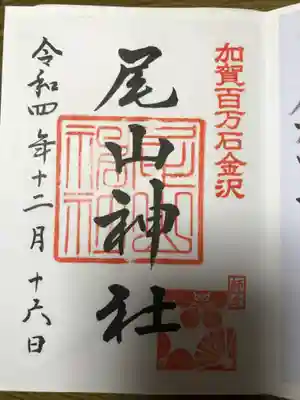 加賀百万石金沢
尾山神社
令和四年十二月十六日